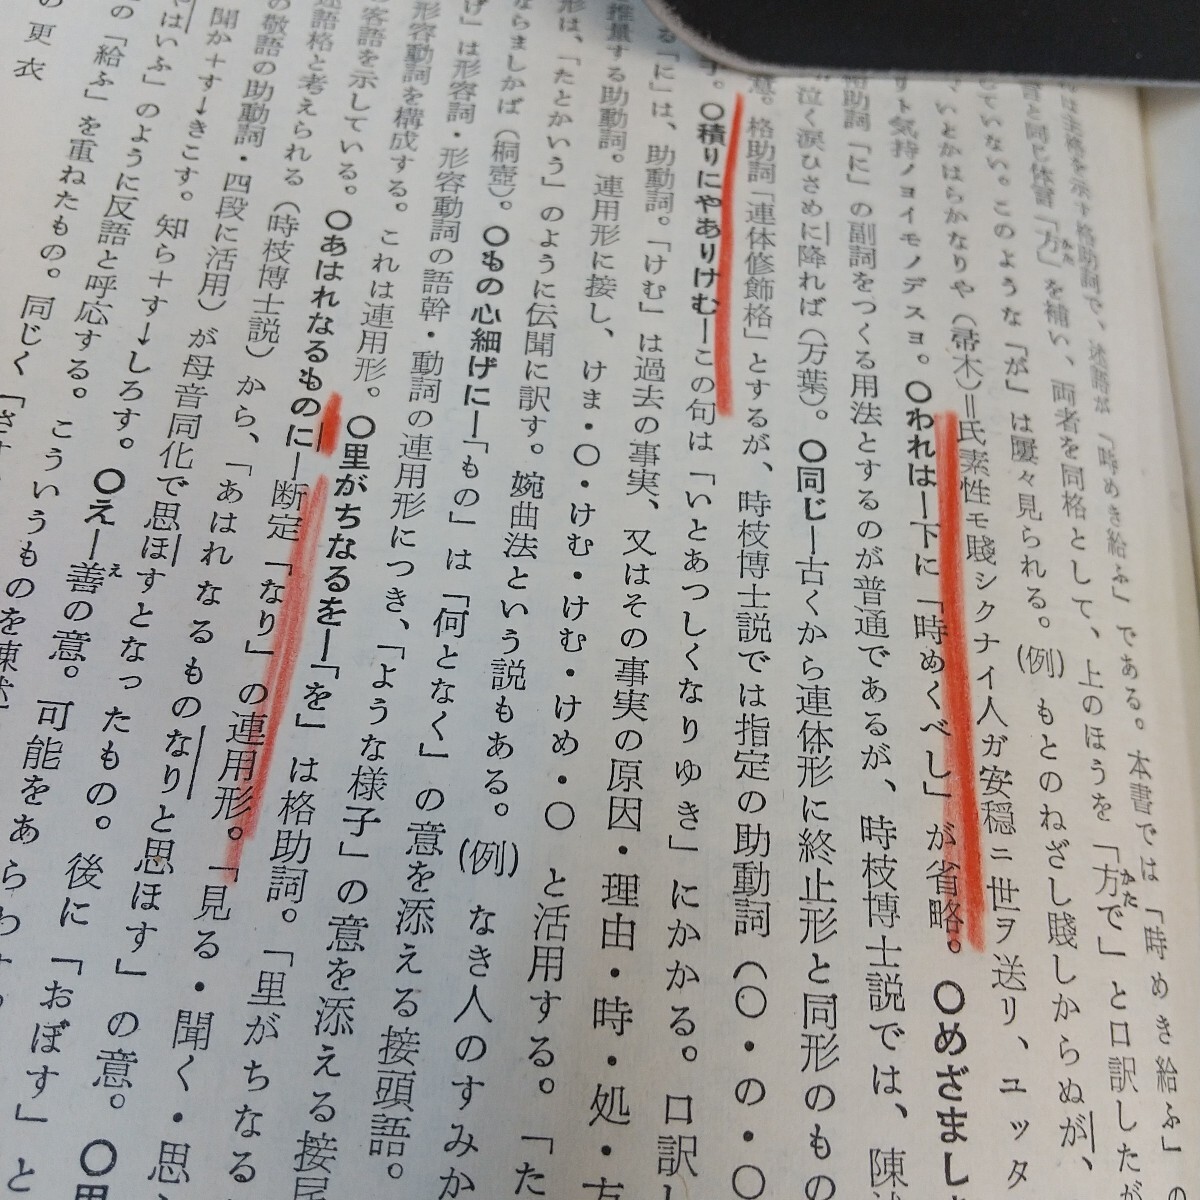 は主格を示す格助詞で、述語が「時めき給ふ」である。本書では「時めき給ふ」の
言と同じ体言「方」を補い、両者を同格として、上のほうを「方で」と口訳したが
していない。このような「が」は屢々見られる。(例)もとのねざし賤しからぬが、
いとかはらかなりや(帚木)=氏素性モ賤シクナイ人ガ安穏ニ世ヲ送リ、ユッタ
リト気持ノヨイモノデスヨ。〇われは—下に「時めくべし」が省略。〇めざまし
格助詞「に」の副詞をつくる用法とするのが普通であるが、時枝博士説では、陳
泣く涙ひさめに降れば(万葉)。〇同じ—古くから連体形に終止形と同形のもの
意。格助詞「連体修飾格」とするが、時枝博士説では指定の助動詞(〇・の・〇
〇積りにやありけむ—この句は「いとあつしくなりゆき」にかかる。口訳し
る「に」は、助動詞。「けむ」は過去の事実、又はその事実の原因・理由・時・処・方
推量する助動詞。連用形に接し、けま・〇・けむ・けむ・けめ・〇と活用する。「た
形は、「たとかいう」のように伝聞に訳す。婉曲法という説もある。(例)なき人のすみか
ならましかば(桐壺)。〇もの心細げに—「もの」は「何となく」の意を添える接頭語。
げ」は形容詞・形容動詞の語幹・動詞の連用形につき、「ような様子」の意を添える接尾
形容動詞を構成する。これは連用形。〇里がちなるを—「を」は格助詞。「里がちなる
客語を示している。〇あはれなるものに—断定「なり」の連用形。「見る・聞く・思
述語格と考えられる(時枝博士説)から、「あはれなるものなりと思ほす」の意。〇思
の敬語の助動詞・四段に活用)が母音同化で思ほすとなったもの。後に「おぼす」と
聞か+す→きこす。知ら+す→しろす。〇え—善の意。可能をあらわす
やはいふ」のように反語と呼応する。こういうものを陳述
の「給ふ」を重ねたもの。同じく「さす
の更衣